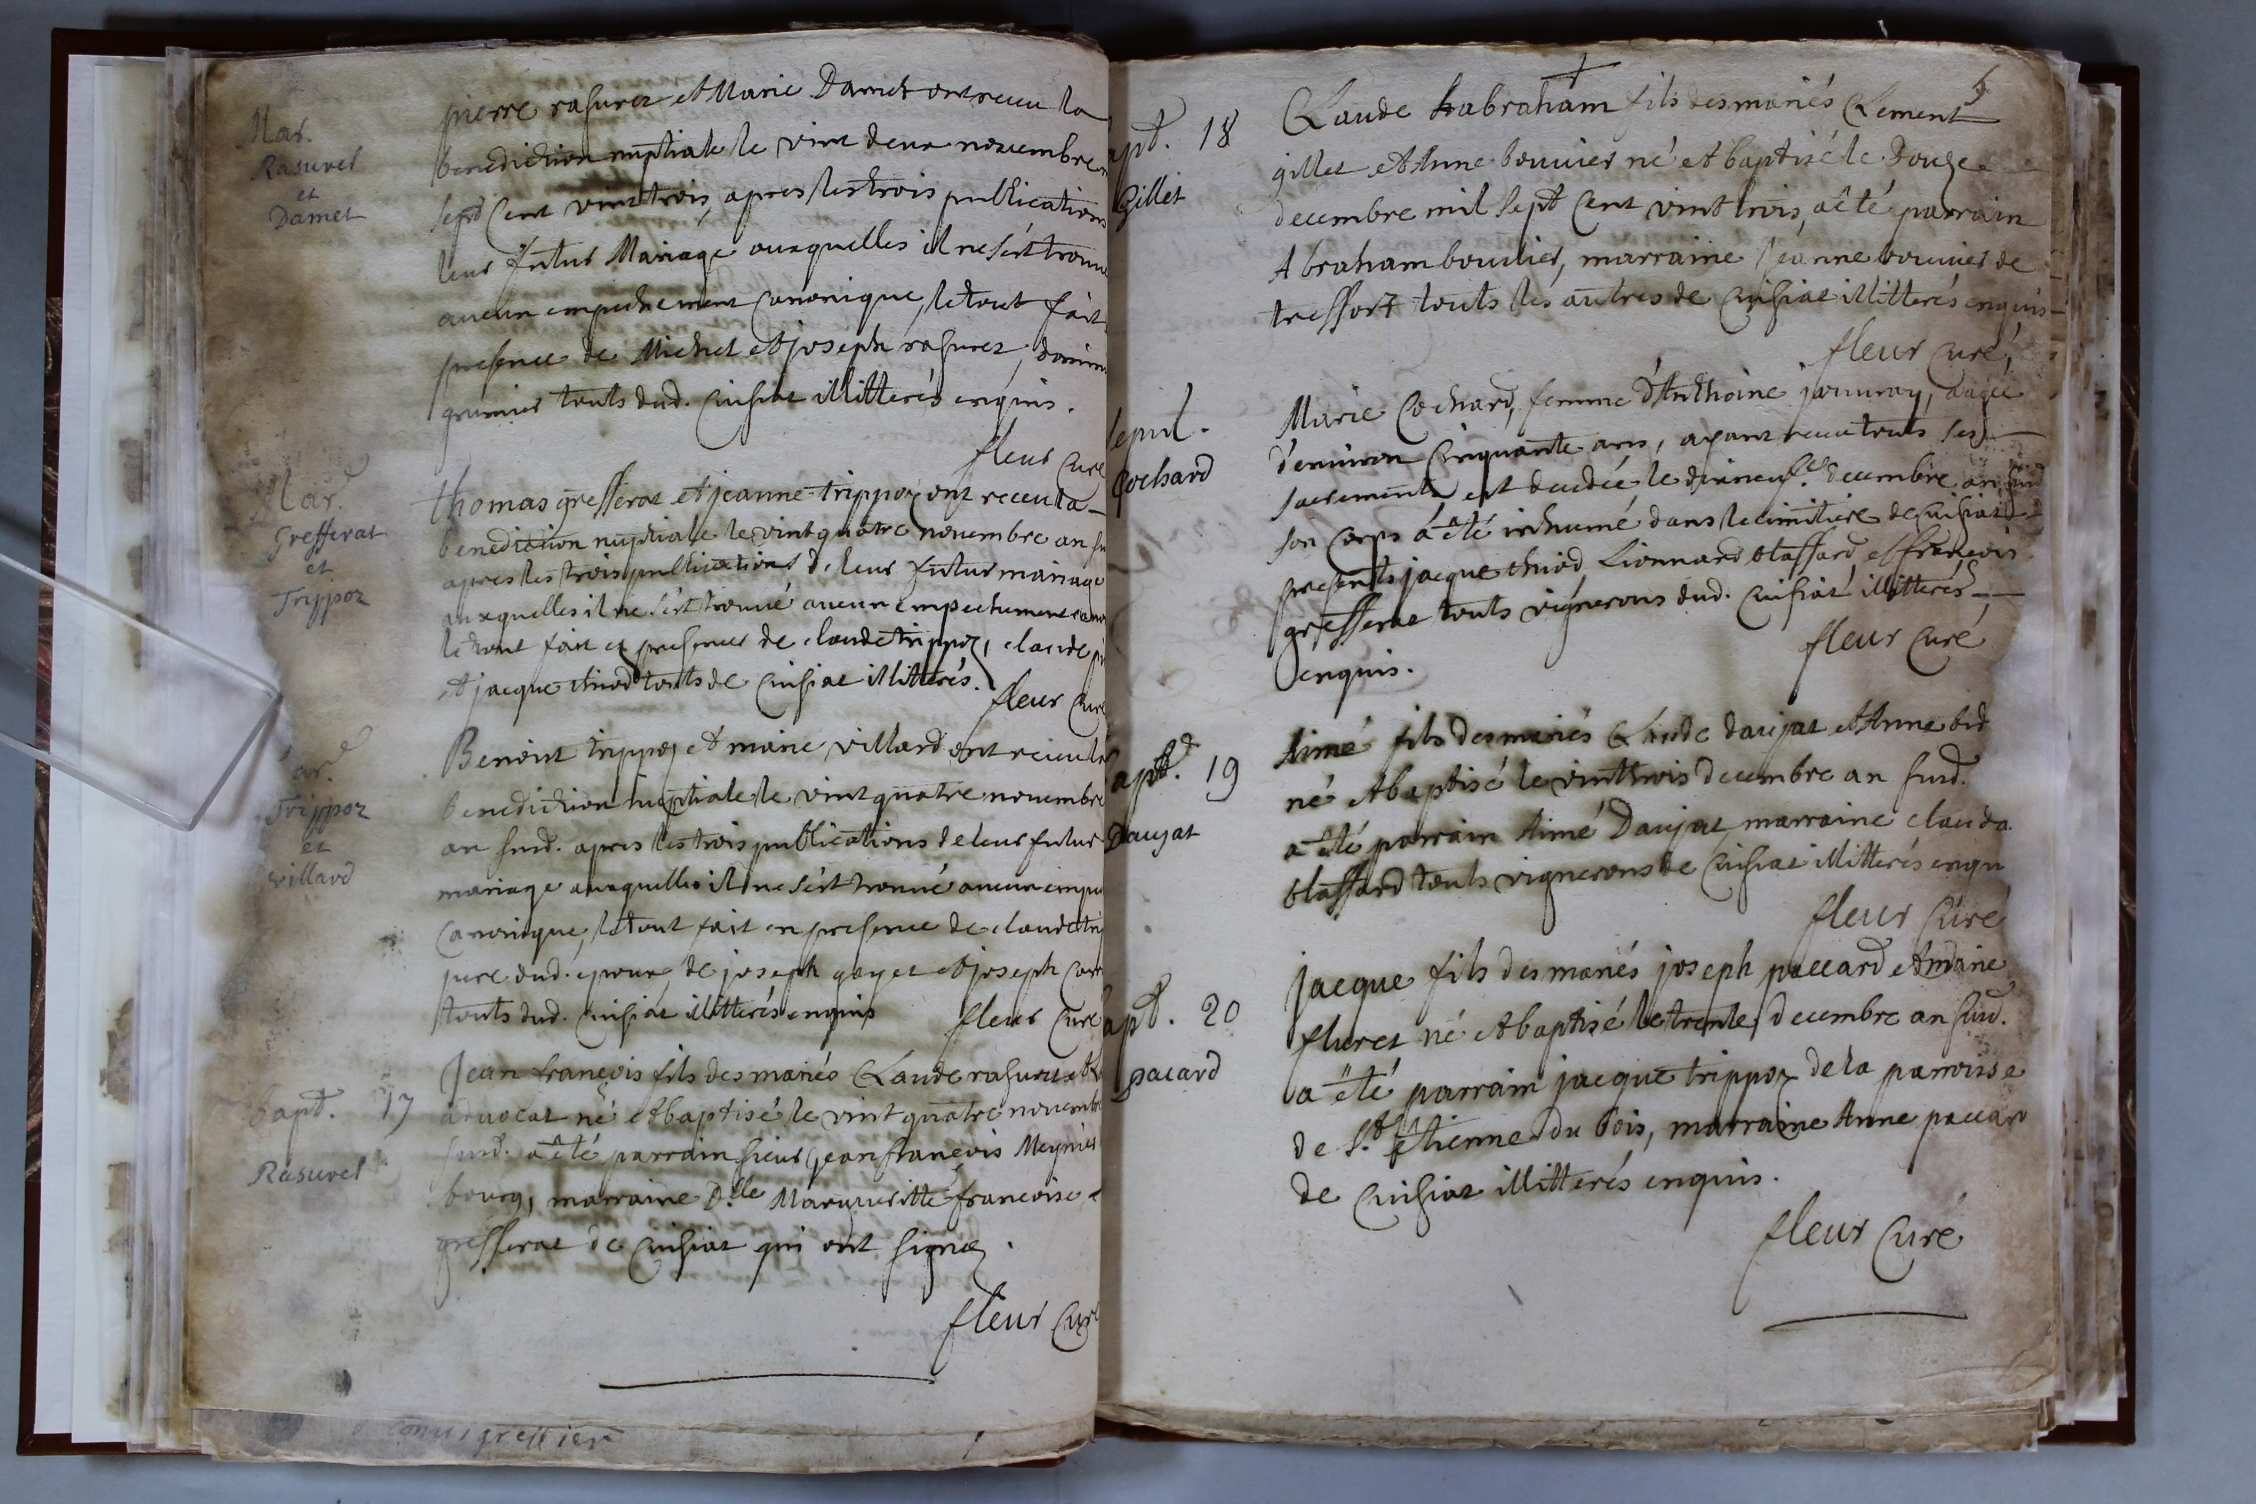 Mar.
Rasurel
et
Damet
pierre rasurer et Marie Damet ont receu la
benediction nuptiale le vint deux novembre
sept Cent vint trois, apres les trois publications
leur futur Mariage auxquelles il ne s'est trouvé
aucun empechement Canonique, le tout fait
presence de Michel et joseph rasurer,
grumier touts dud. Cuisiat illitterés enquis.
fleur Curé
Mar.
Grefferat
et
Trippoz
thomas grefferat et jeanne trippoz ont receu la
benediction nuptiale le vint quatre novembre an
apres les trois publications de leur futur mariage
auxquelles il ne s'est trouvé aucun empechement
le tout fait en presence de claude trippoz, claude
et jacque chiod touts de Cuisiat illitterés.
fleur Curé
Mar.
Trippoz
et
villard
Benoist trippoz et marie villard ont receu la
benediction nuptiale le vint quatre novembre
an susd. apres les trois publications de leur futur
mariage auxquelles il ne s'est trouvé aucun
Canonique, le tout fait en presence de claude
pere dud. epoux, de joseph gayet et joseph
touts dud. Cuisiat illitterés enquis
fleur Curé
bapt. 17
Rasurel
Jean françois fils des mariés Claude rasurer et
advocat né et baptisé le vint quatre novembre
susd. a été parrain sieur jean françois Meynier
bourg, marraine D.lle Margueritte françoise
grefferat de Cuisiat qui ont signez.
fleur Curé
bapt. 18
Gillet
Claude habraham fils des mariés Clement
gillet et Anne bouvier né et baptisé le Douze
decembre mil sept Cent vint trois, a été parrain
Abraham bouvier, marraine jeanne bouvier de
treffort touts les autres de Cuisiat illitterés enquis
fleur Curé,
sepul.
Cochard
Marie Cochard, femme d'Anthoine jouvray, aagée
d'environ Cinquante ans, ayant receu touts ses
sacrements est decedée le dixneuf.e decembre an
son Corps a été inhumé dans le cimitiere de Cuisiat
presents jacque chiod, Lionnard blaffard, et françois
grefferat touts vignerons dud. Cuisiat illitterés
enquis.
fleur Curé
bapt. 19
Daujat
Aimé fils des mariés Claude daujat et Anne
né et baptisé le vint trois decembre an susd.
a été parrain Aimé Daujat, marraine clauda
blaffard touts vignerons de Cuisiat illitterés
fleur Curé
bapt. 20
pacard
jacque fils des mariés joseph paccard et marie
fluret né et baptisé le trente decembre an susd.
a été parrain jacque trippoz de la parroisse
de S.t Etienne du bois, marraine Anne paccard
de Cuisiat illitterés enquis.
fleur Curé